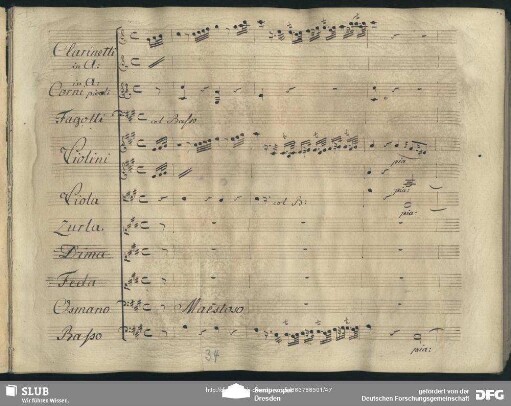 Clarinetti
in A:
in A:
Corni
Fagotti
col Basso
Violini
pia:
pia:
Viola
col B:
pia:
Zurla
Dima
Feda
Osmano
Maestoso
Basso
pia:
34
SLUB
Wir führen Wissen.
Dresden
gefördert von der
Deutschen Forschungsgemeinschaft
DFG